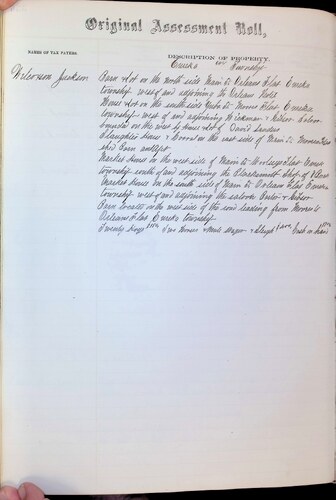 Original Assessment Roll,
NAMES OF TAX PAYERS.
DESCRIPTION OF PROPERTY.
Eureka Township
Wilcoxson Jackson
Barn & Lot on the north side Main St Orleans Flat Eureka
township west of and adjoining the Orleans Hotel
House & Lot on the south side Main St Moores Flat Eureka
township west of and adjoining Saloon
on the west by House & Lot of David
Slaughter House & Corral on the east side of Main St Moores Flat
shed Barn
Market House on the west side of Main St Woolseys Flat Eureka
township south of and adjoining the Blacksmith Shop of
Market House on the south side of Main St Orleans Flat Eureka
township west of and adjoining the saloon
Barn located on the west side of the road leading from Moores to
Orleans Flat Eureka township
Twenty Hogs Four Horses Wagon & Sleigh Cash on hand